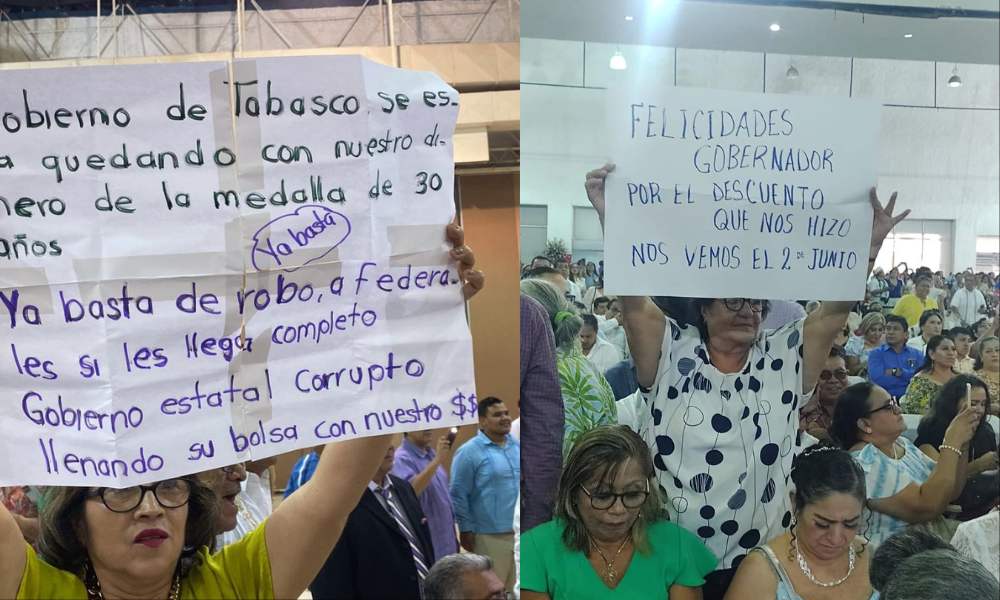 obierno de Tabasco, se es-
a quedando con nuestro di-
nero de la medalla de 30
años
Ya basta
Ya basta de robo, a federa-
les si les llega completo
Gobierno estatal corrupto
llenando su bolsa con nuestro $$
FELICIDADES
GOBERNADOR
POR EL DESCUENTO
QUE NOS HIZO
NOS VEMOS EL 2 DE JUNIO